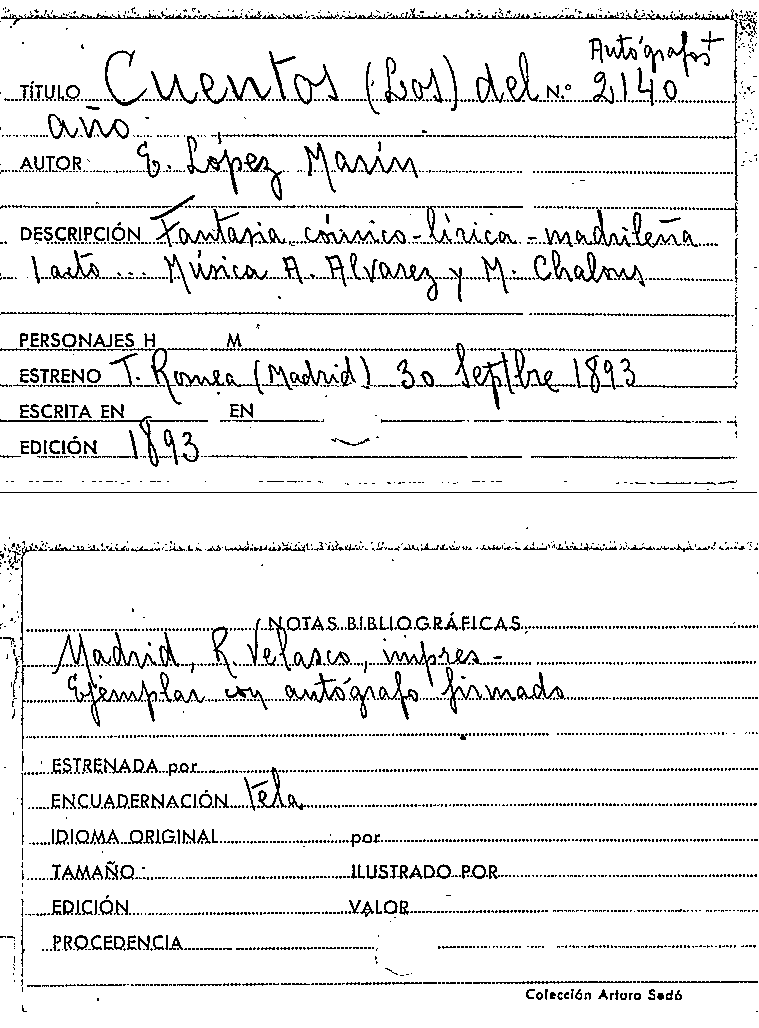 Autógrafos +
TÍTULO Cuentos (Los) del N.º 2140
año
AUTOR E. López Marín
DESCRIPCIÓN Fantasia cómico-lírica-madrileña
1 acto... Música A. Alvarez y M. Chalons
PERSONAJES H M
ESTRENO T. Romea (Madrid) 30 Sepbre 1893
ESCRITA EN EN
EDICIÓN 1893
NOTAS BIBLIOGRÁFICAS
Madrid, R. Velasco, impres-
Ejemplar con autógrafo firmado
ESTRENADA por
ENCUADERNACIÓN tela
IDIOMA ORIGINAL por
TAMAÑO ILUSTRADO POR
EDICIÓN VALOR
PROCEDENCIA
Colección Arturo Sedó